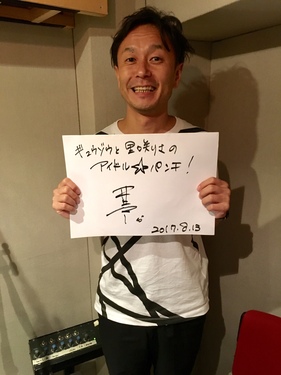 ギュウゾウと里咲りさの
アイドル☆パンチ!
2017.8.13